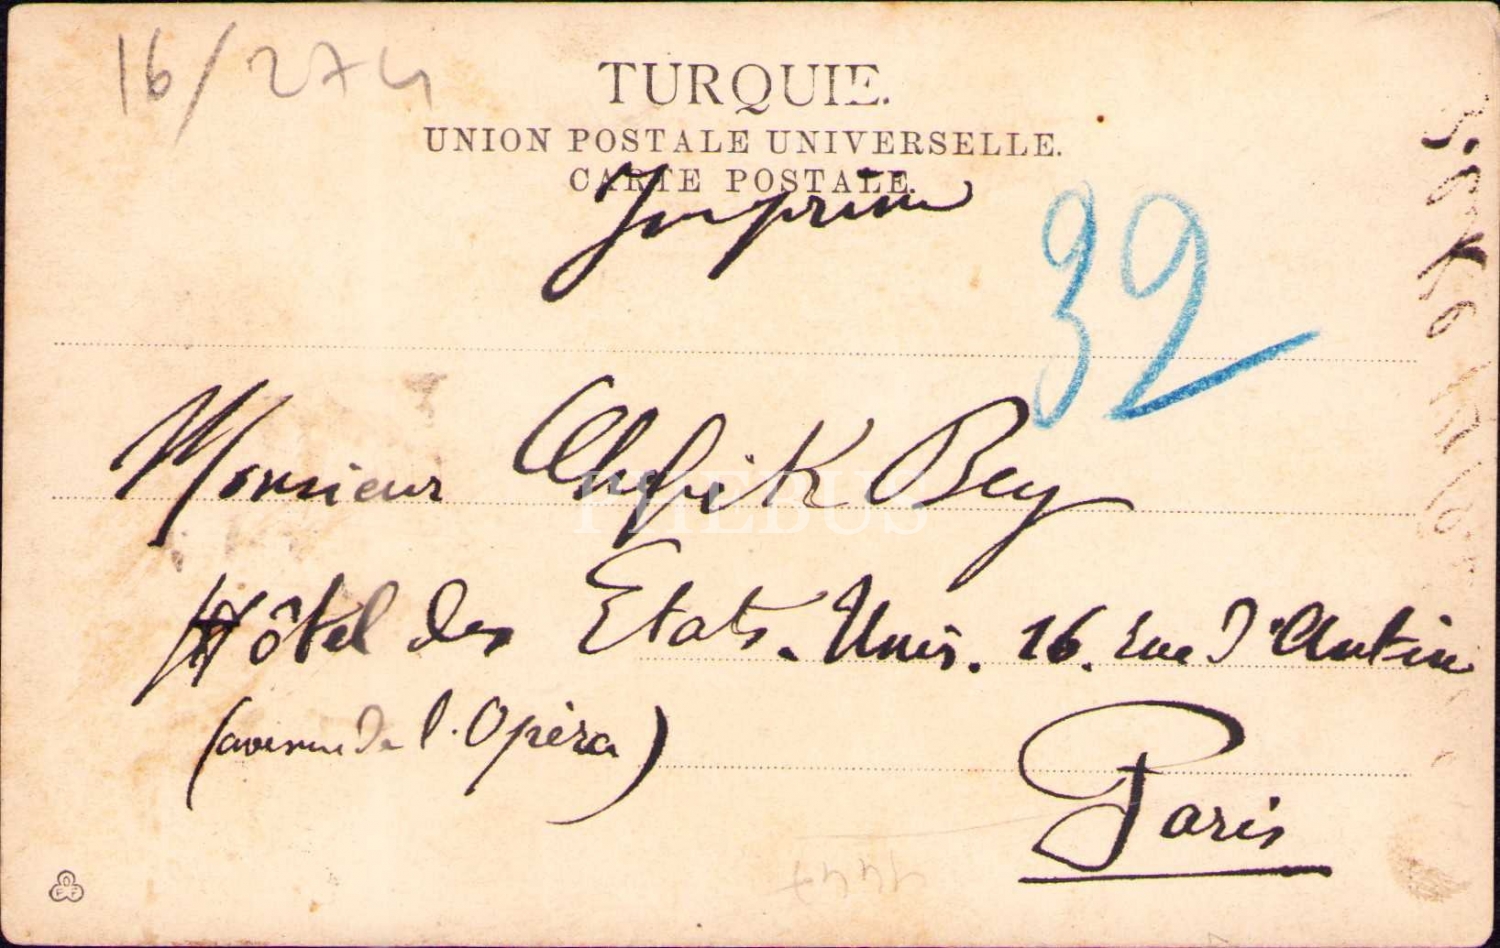 16/274
TURQUIE.
UNION POSTALE UNIVERSELLE.
CARTE POSTALE.
Imprimé
32
Monsieur Chefik Bey
PHEBUS
Hôtel des Etats-Unis. 16. rue d'Antin
(avenue de l'Opéra)
Paris